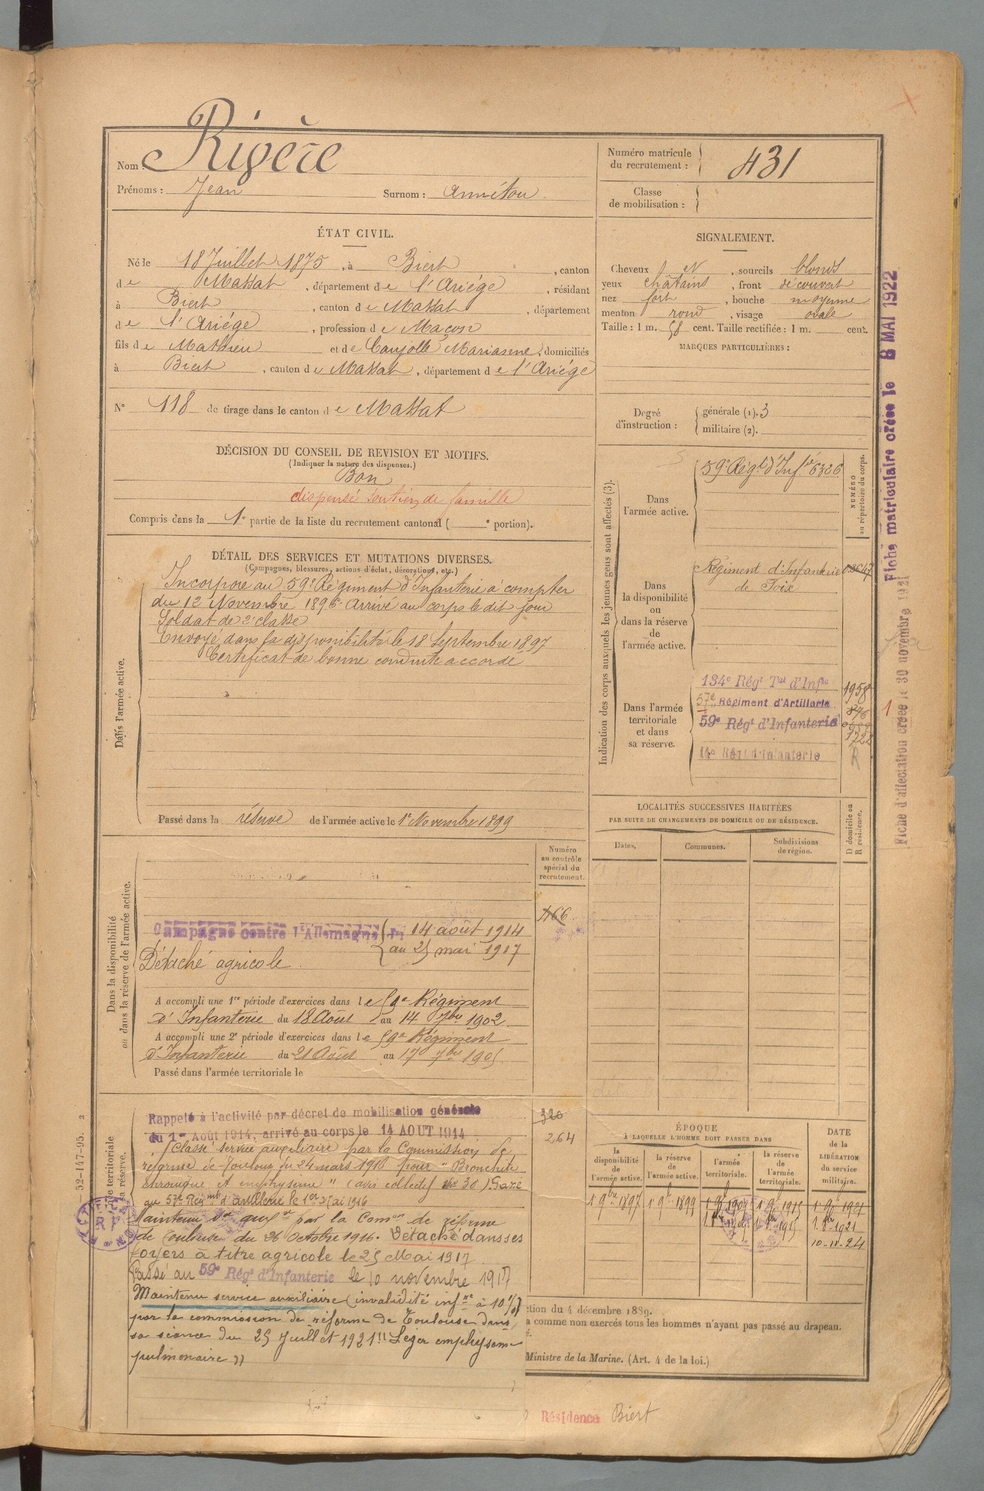 Nom Rivère
Prénoms : Jean Surnom : Annétou
Numéro matricule du recrutement : 431
Classe de mobilisation :
ÉTAT CIVIL.
Né le 18 Juillet 1875, à Biert, canton
de Massat, département de l'Ariège, résidant
à Biert, canton de Massat, département
de l'Ariège, profession de Maçon
fils de Mathieu et de Caujolle Marianne, domiciliés
à Biert, canton de Massat, département de l'Ariège
N° 118 de tirage dans le canton de Massat
SIGNALEMENT.
Cheveux, sourcils blonds
yeux châtains, front découvert
nez fort, bouche moyenne
menton rond, visage ovale
Taille : 1 m. 58 cent. Taille rectifiée : 1 m. cent.
MARQUES PARTICULIÈRES :
Degré d'instruction : générale (1). 3
militaire (2).
DÉCISION DU CONSEIL DE REVISION ET MOTIFS.
(Indiquer la nature des dispenses.)
Bon
dispensé soutien de famille
Compris dans la 1e partie de la liste du recrutement cantonal ( e portion).
DÉTAIL DES SERVICES ET MUTATIONS DIVERSES.
(Campagnes, blessures, actions d'éclat, décorations, etc.)
Dans l'armée active.
Incorporé au 59e Régiment d'Infanterie à compter
du 12 Novembre 1896 Arrivé au corps le dit jour
Soldat de 2e classe
Envoyé dans la disponibilité le 18 Septembre 1897
Certificat de bonne conduite accordé
Passé dans la réserve de l'armée active le 1er Novembre 1899
Indication des corps auxquels les jeunes gens sont affectés (3).
NUMÉRO au répertoire du corps.
Dans l'armée active.
59e Régt d'Infie 6326
Dans la disponibilité ou dans la réserve de l'armée active.
Régiment d'Infanterie
de Foix
Dans l'armée territoriale et dans sa réserve.
134e Régt Tal d'Infie 1958
57e Régiment d'Artillerie 896
59e Régt d'Infanterie
14e Régt d'Infanterie R
LOCALITÉS SUCCESSIVES HABITÉES
PAR SUITE DE CHANGEMENTS DE DOMICILE OU DE RÉSIDENCE.
Dates. Communes. Subdivisions de région. D domicile ou R résidence.
Dans la disponibilité ou dans la réserve de l'armée active.
Numéro au contrôle spécial du recrutement.
466
Campagne contre l'Allemagne du 14 août 1914
au 25 mai 1917
Détaché agricole
A accompli une 1re période d'exercices dans le 59e Régiment
d'Infanterie du 18 Août au 14 7bre 1902
A accompli une 2e période d'exercices dans le 59e Régiment
d'Infanterie du 21 Août au 17 7bre 1905
Passé dans l'armée territoriale le
320
264
Rappelé à l'activité par décret de mobilisation générale
du 1er Août 1914, arrivé au corps le 14 AOUT 1914
Classé service auxiliaire par la Commission de
réforme de Toulouse du 24 mars 1916 pour "Bronchite
chronique et emphysème" (avis collectif No 30) Passé
au 57e Régmt d'artillerie le 1er Mai 1916
Maintenu sce auxre par la Comon de réforme
de Toulouse du 26 Octobre 1916. Détaché dans ses
foyers à titre agricole le 25 Mai 1917
Passé au 59e Régt d'Infanterie le 10 novembre 1917
Maintenu service auxiliaire (invalidité infre à 10%)
par la commission de réforme de Toulouse dans
sa séance du 25 Juillet 1921 "Léger emphysème
pulmonaire"
ÉPOQUE
À LAQUELLE L'HOMME DOIT PASSER DANS
la disponibilité de l'armée active. la réserve de l'armée active. l'armée territoriale. la réserve de l'armée territoriale.
DATE de la LIBÉRATION du service militaire.
1 9bre 1897 1 9bre 1899
10-11-24
tion du 4 décembre 1889.
a comme non exercés tous les hommes n'ayant pas passé au drapeau.
Ministre de la Marine. (Art. 4 de la loi.)
Résidence Biert
Fiche matriculaire créée le 8 MAI 1922
Fiche d'affectation créée le 30 novembre 1921